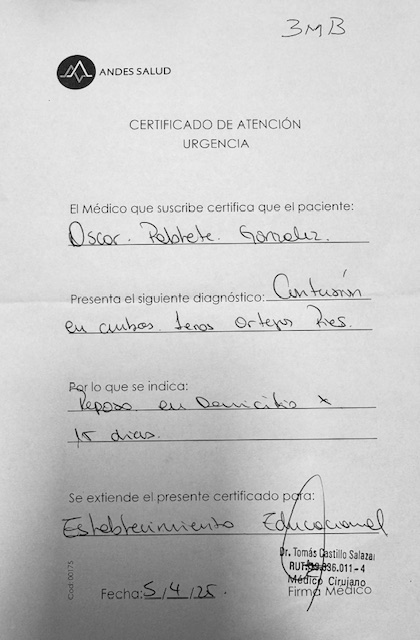 3MB
ANDES SALUD
CERTIFICADO DE ATENCIÓN
URGENCIA
El Médico que suscribe certifica que el paciente:
Oscar. Poblete. Gonzalez.
Presenta el siguiente diagnóstico: Contusión
en ambos 1eros Ortejos Pies.
Por lo que se indica:
Reposo en Domicilio x
15 dias.
Se extiende el presente certificado para:
Establecimiento Educacional
Dr. Tomás Castillo Salazar
RUT: 836.011-4
Médico Cirujano
Fecha: 5/4/25.
Firma Médico
Cod: 00175